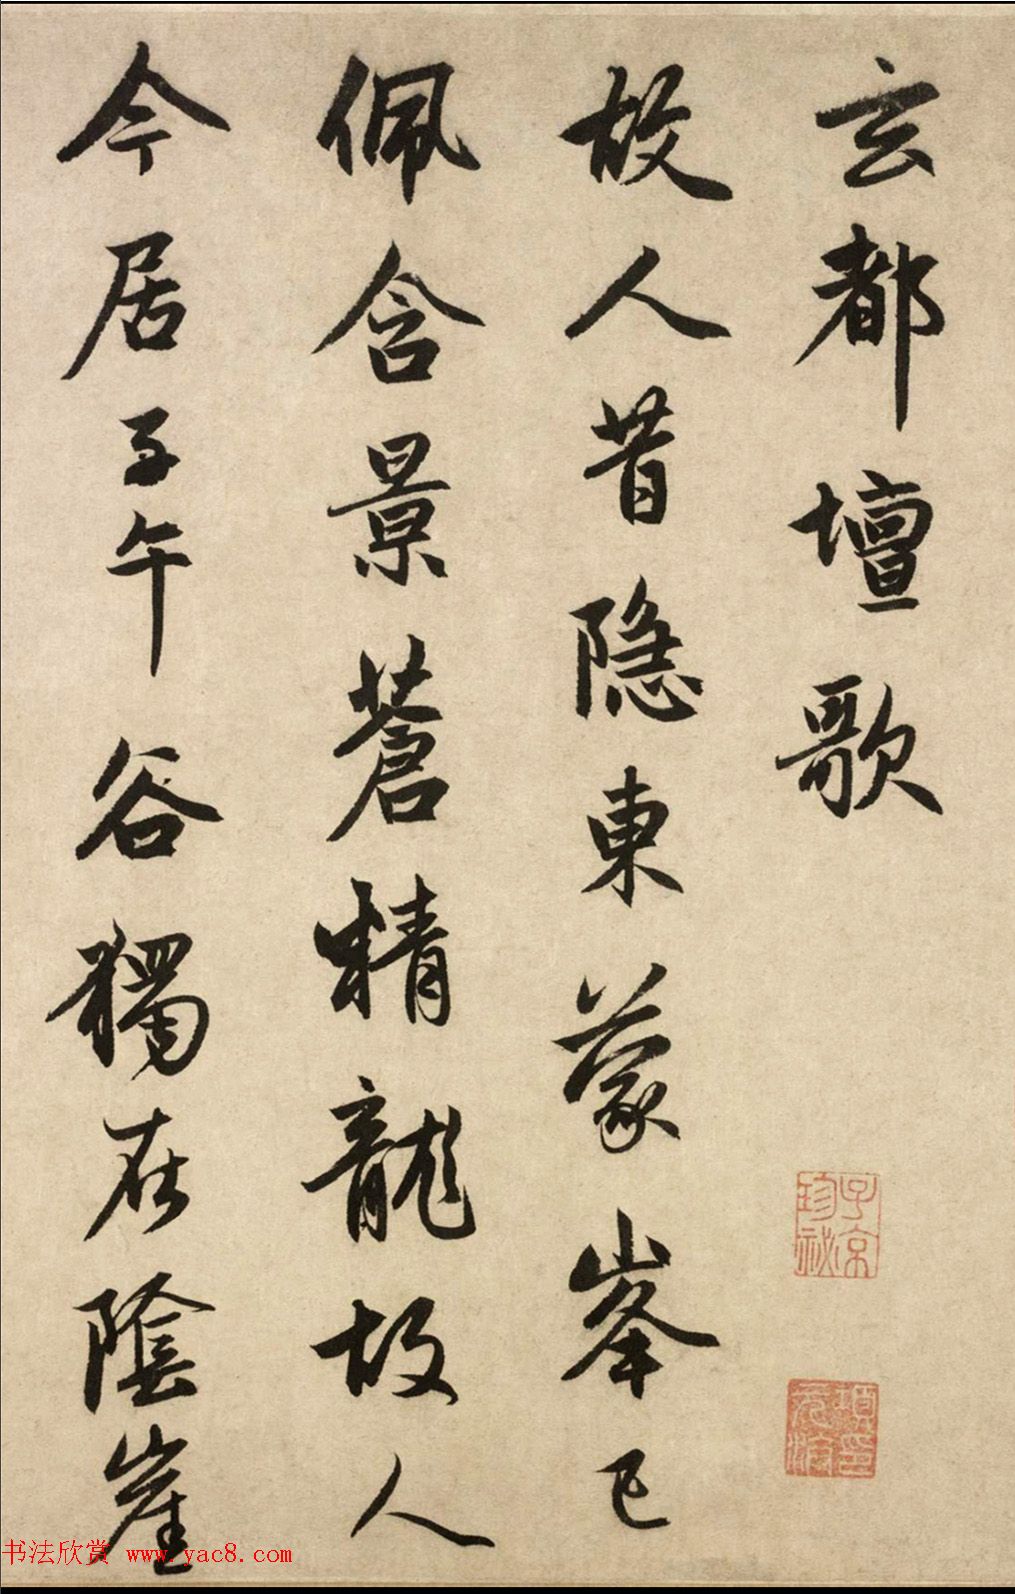 玄都壇歌
故人昔隐東蒙峯已
佩含景蒼精龍故人
今居子午谷獨在陰崖
子京
珍祕
項元汴印
书法欣赏 www.yac8.com